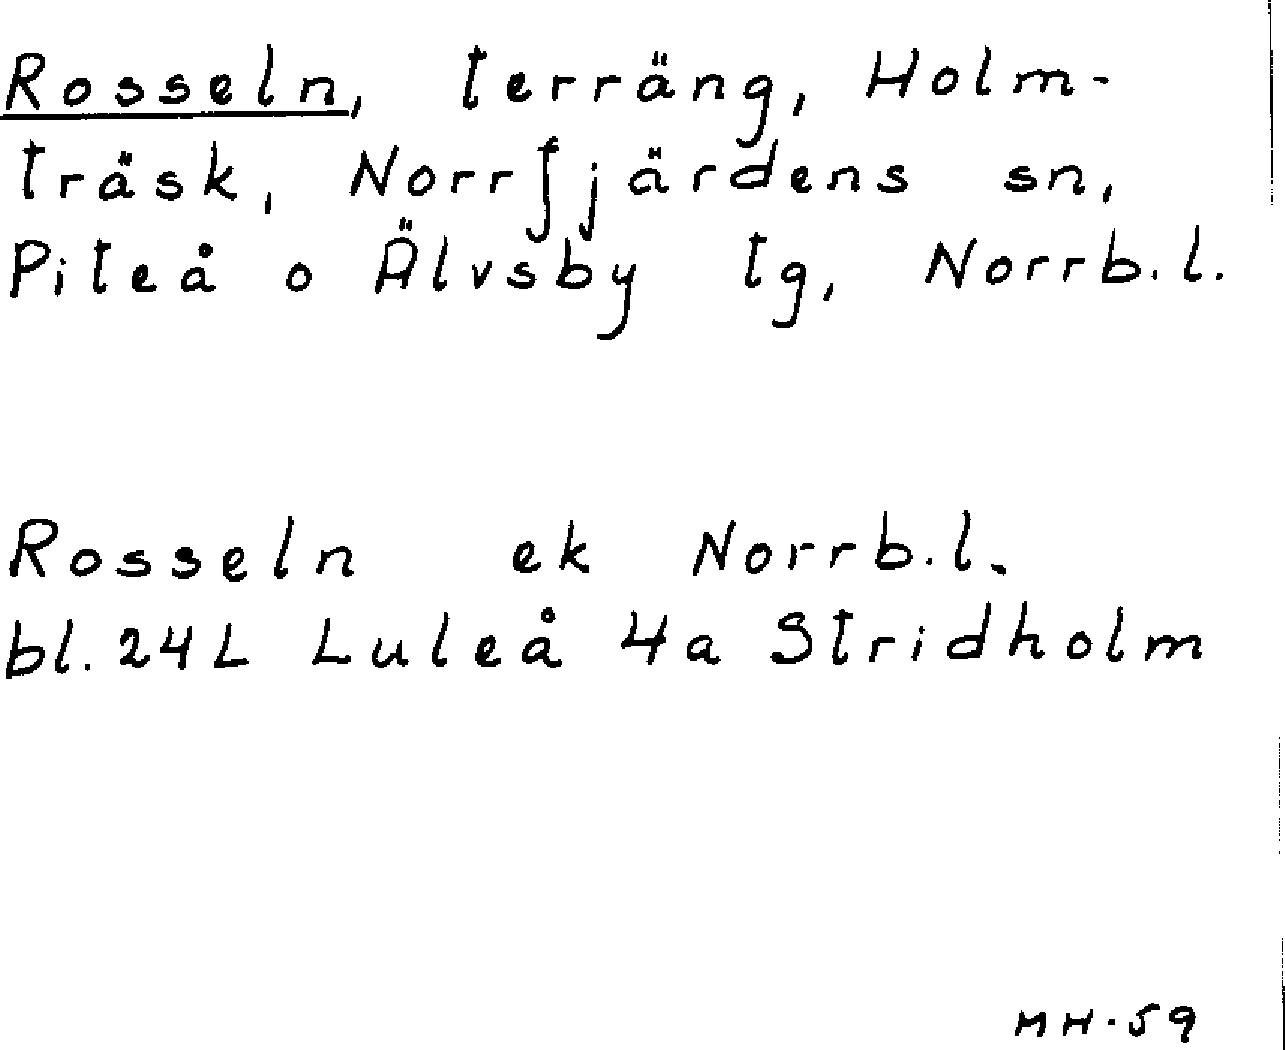 Rosseln, terräng, Holm-
träsk, Norrfjärdens sn,
Piteå o Älvsby tg, Norrb.l.
Rosseln ek Norrb.l.
bl. 24L Luleå 4a Stridholm
MH.59